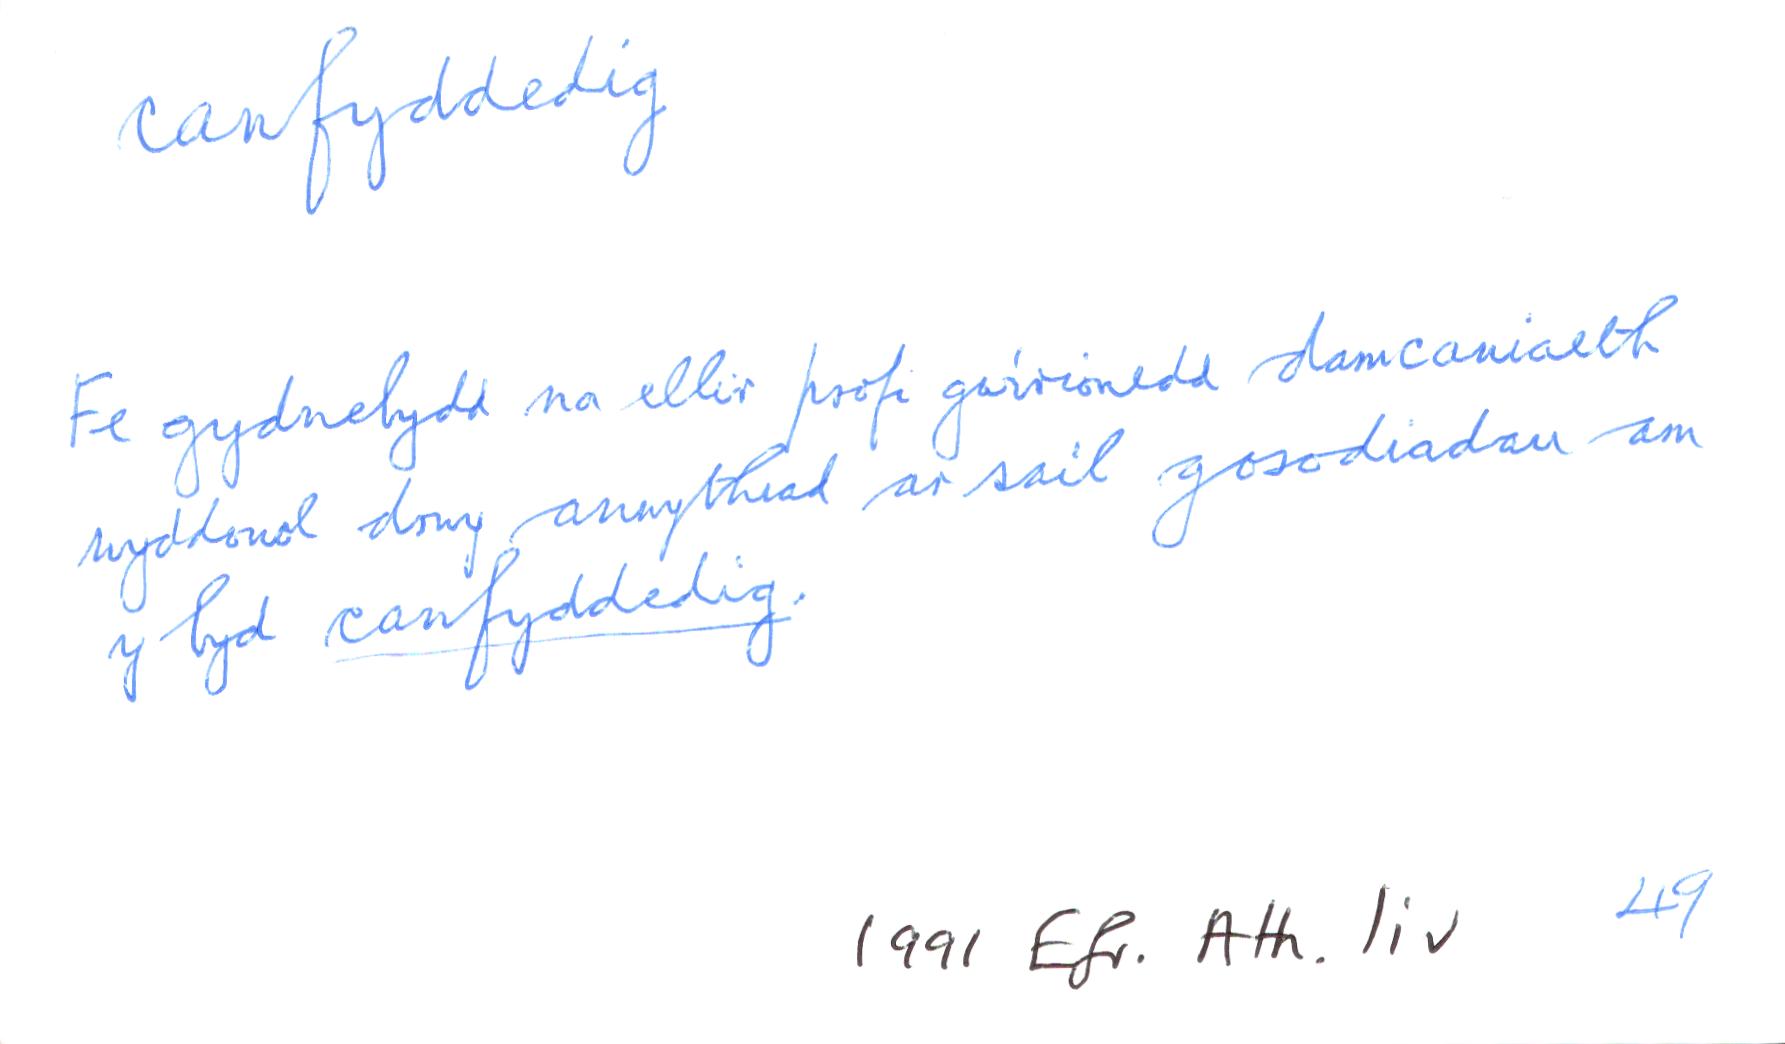 canfyddedig
Fe gydnebydd na ellir profi gwirionedd damcaniaeth
wyddonol drwy anwythiad ar sail gosodiadau am
y byd canfyddedig.
1991 Efr. Ath. liv 49